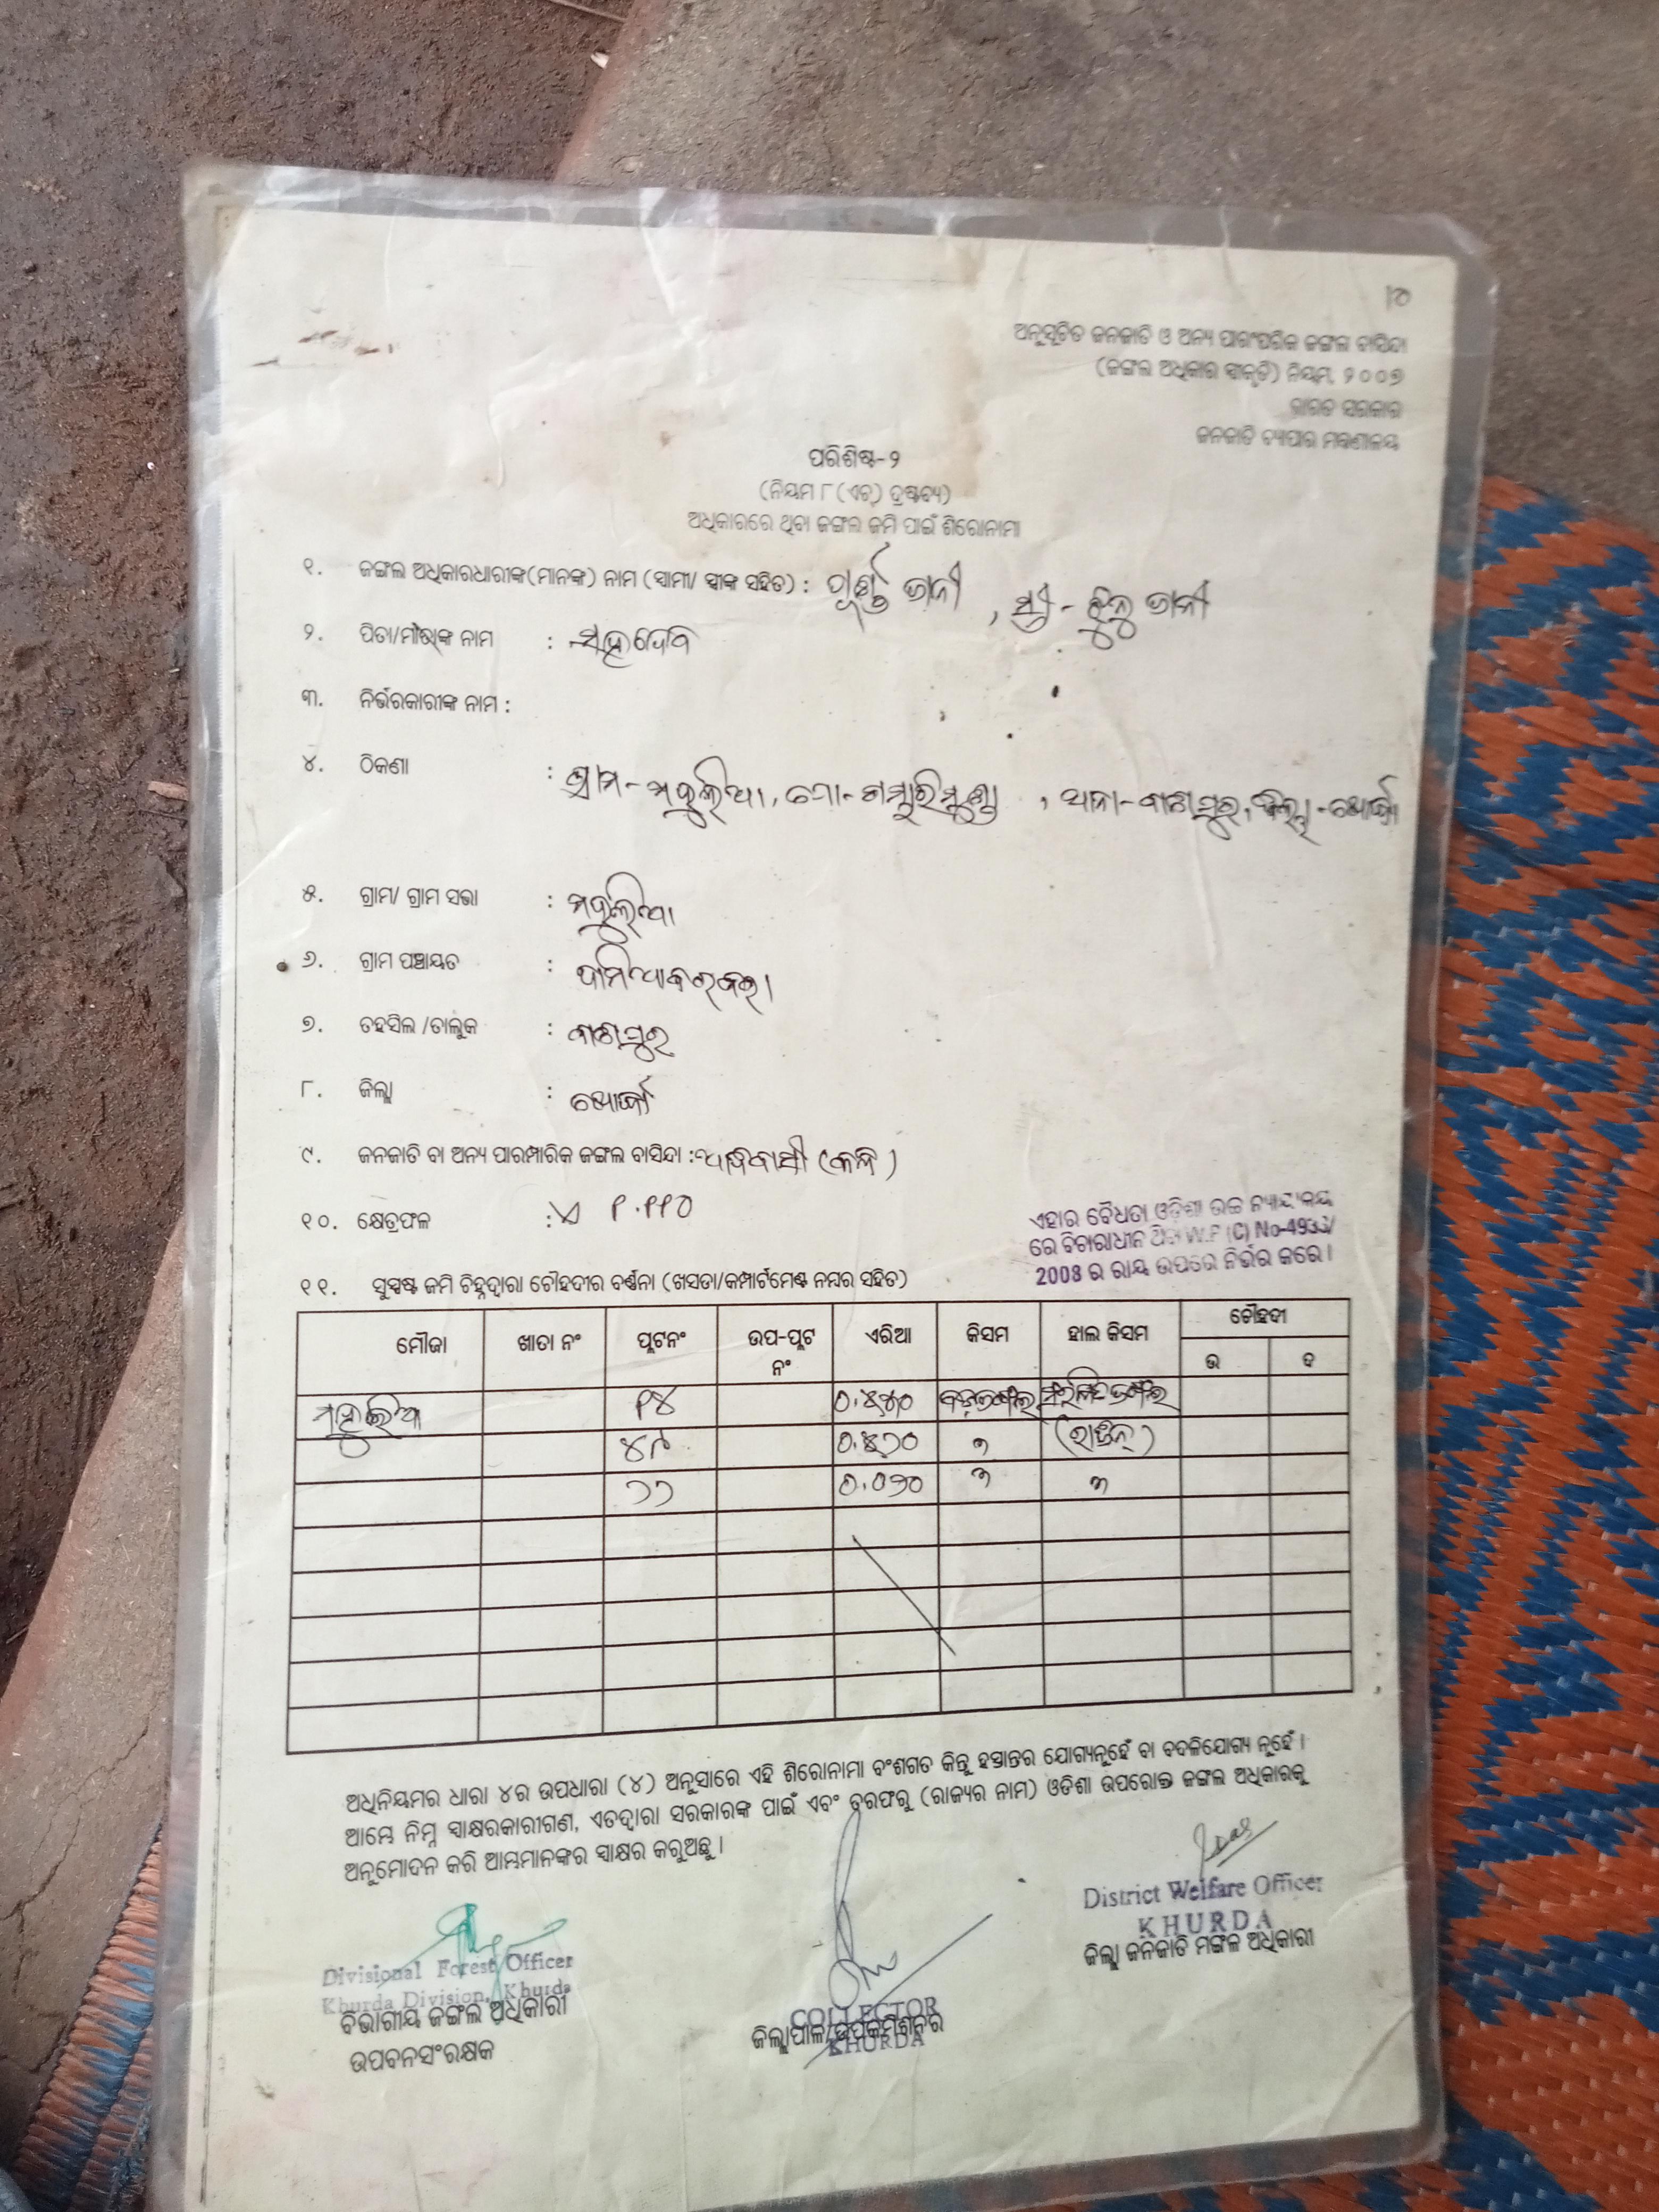 ଅନୁସୂଚିତ ଜନଜାତି ଓ ଅନ୍ୟ ପାରଂପରିକ ଜଙ୍ଗଲ ବାସିନ୍ଦା
(ଜଙ୍ଗଲ ଅଧିକାର ସ୍ୱୀକୃତି) ନିୟମ, ୨୦୦୭
ଭାରତ ସରକାର
ଜନଜାତି ବ୍ୟାପାର ମନ୍ତ୍ରଣାଳୟ
ପରିଶିଷ୍ଟ-୨
(ନିୟମ ୮(ଏଚ୍) ଦ୍ରଷ୍ଟବ୍ୟ)
ଅଧିକାରରେ ଥିବା ଜଙ୍ଗଲ ଜମି ପାଇଁ ଶିରୋନାମା
୧. ଜଙ୍ଗଲ ଅଧିକାରଧାରୀଙ୍କ(ମାନଙ୍କ) ନାମ (ସ୍ୱାମୀ/ ସ୍ତ୍ରୀଙ୍କ ସହିତ) : ପୂର୍ଣ୍ଣ ଭାଳୀ , ସ୍ତ୍ରୀ - ଝୁନୁ ଭାଳୀ
୨. ପିତା/ମାତାଙ୍କ ନାମ : ସହଦେବ
୩. ନିର୍ଭରକାରୀଙ୍କ ନାମ :
୪. ଠିକଣା : ଗ୍ରାମ- ମହୁଲିଆ, ପୋ- , ଥାନା-ବାଣପୁର, ଜିଲ୍ଲା-ଖୋର୍ଦ୍ଧା
୫. ଗ୍ରାମ/ ଗ୍ରାମ ସଭା : ମହୁଲିଆ
୬. ଗ୍ରାମ ପଞ୍ଚାୟତ :
୭. ତହସିଲ /ତାଲୁକ : ବାଣପୁର
୮. ଜିଲ୍ଲା : ଖୋର୍ଦ୍ଧା
୯. ଜନଜାତି ବା ଅନ୍ୟ ପାରମ୍ପାରିକ ଜଙ୍ଗଲ ବାସିନ୍ଦା : ଆଦିବାସୀ (କନ୍ଧ)
୧୦. କ୍ଷେତ୍ରଫଳ : ୧.୧୧୦
ଏହାର ବୈଧତା ଓଡ଼ିଶା ଉଚ୍ଚ ନ୍ୟାୟାଳୟ
ରେ ବିଚାରାଧୀନ ଥିବା W.P (C) No-4933/
2008 ର ରାୟ ଉପରେ ନିର୍ଭର କରେ ।
୧୧. ସୁସ୍ପଷ୍ଟ ଜମି ଚିହ୍ନଦ୍ୱାରା ଚୌହଦୀର ବର୍ଣ୍ଣନା (ଖସଡା/କମ୍ପାର୍ଟମେଣ୍ଟ ନମ୍ବର ସହିତ)
ମୌଜା ଖାତା ନଂ ପ୍ଲଟନଂ ଉପ-ପ୍ଲଟ ନଂ ଏରିଆ କିସମ ହାଲ କିସମ ଚୌହଦୀ
ଉ ଦ
ମହୁଲିଆ ୧୪
୪୯
୨୨ ୦.୦୨୦
ଅଧିନିୟମର ଧାରା ୪ର ଉପଧାରା (୪) ଅନୁସାରେ ଏହି ଶିରୋନାମା ବଂଶଗତ କିନ୍ତୁ ହସ୍ତାନ୍ତର ଯୋଗ୍ୟନୁହେଁ ବା ବଦଳିଯୋଗ୍ୟ ନୁହେଁ ।
ଆମ୍ଭେ ନିମ୍ନ ସ୍ୱାକ୍ଷରକାରୀଗଣ, ଏତଦ୍ୱାରା ସରକାରଙ୍କ ପାଇଁ ଏବଂ ତରଫରୁ (ରାଜ୍ୟର ନାମ) ଓଡିଶା ଉପରୋକ୍ତ ଜଙ୍ଗଲ ଅଧିକାରକୁ
ଅନୁମୋଦନ କରି ଆମ୍ଭମାନଙ୍କର ସ୍ୱାକ୍ଷର କରୁଅଛୁ ।
District Welfare Officer
KHURDA
ଜିଲ୍ଲା ଜନଜାତି ମଙ୍ଗଳ ଅଧିକାରୀ
Divisional Forest Officer
Khurda Division, Khurda
ବିଭାଗୀୟ ଜଙ୍ଗଲ ଅଧିକାରୀ
ଉପବନସଂରକ୍ଷକ
COLLECTOR
ଜିଲ୍ଲାପାଳ/ଉପକମିଶନର
KHURDA